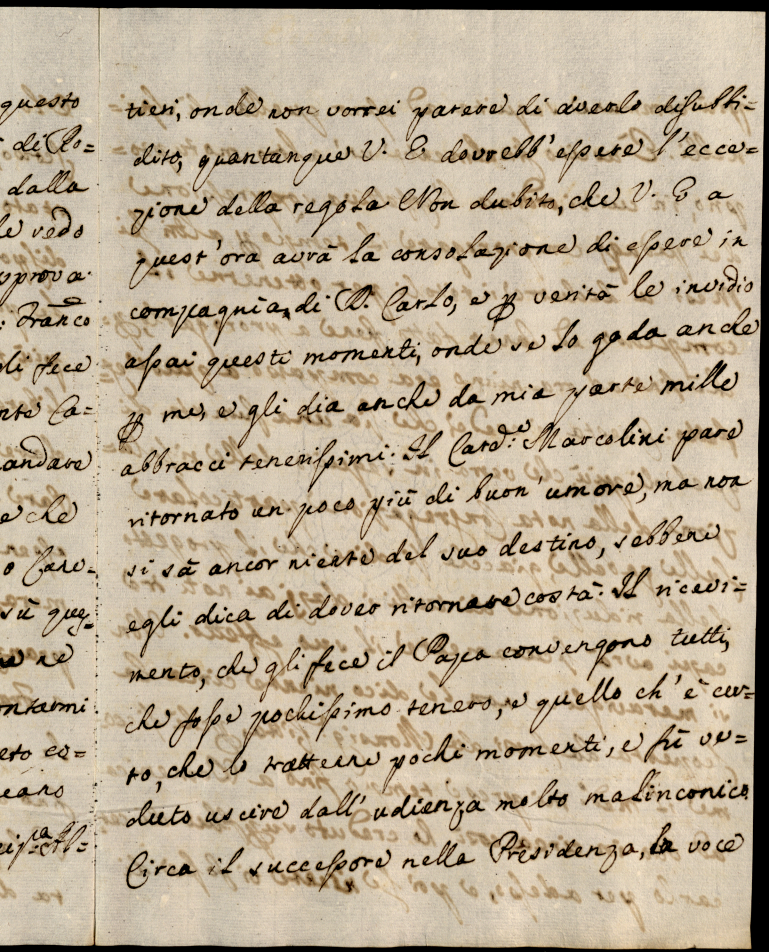 questo
di Ro=
dalla
le vedo
approva.
: Franco
gli fece
nte Ca=
andare
e che
o Care=
sù ques=
ne
ontarmi
eto co=
eano
tieri, onde non vorrei parere di averlo disubbi=
dito, quantunque V. E dovrebb'essere l'ecce=
zione della regola Non dubito, che V. E a
quest'ora avrà la consolazione di essere in
compagnia, di D. Carlo, e ꝑ verità le invidio
assai questi momenti, onde se lo goda anche
ꝑ me, e gli dia anche da mia parte mille
abbracci tenerissimi: Il Card.e Marcolini pare
ritornato un poco più di buon'umore, ma non
si sà ancor niente del suo destino, sebbene
egli dica di dover ritornare costà: Il ricevi=
mento, che gli fece il Papa convengono tutti,
che fosse pochissimo tenero, e quello ch'è cer=
to, che lo trattenne pochi momenti, e fù ve=
duto uscire dall'udienza molto malinconico
Circa il successore nella Presidenza, la voce